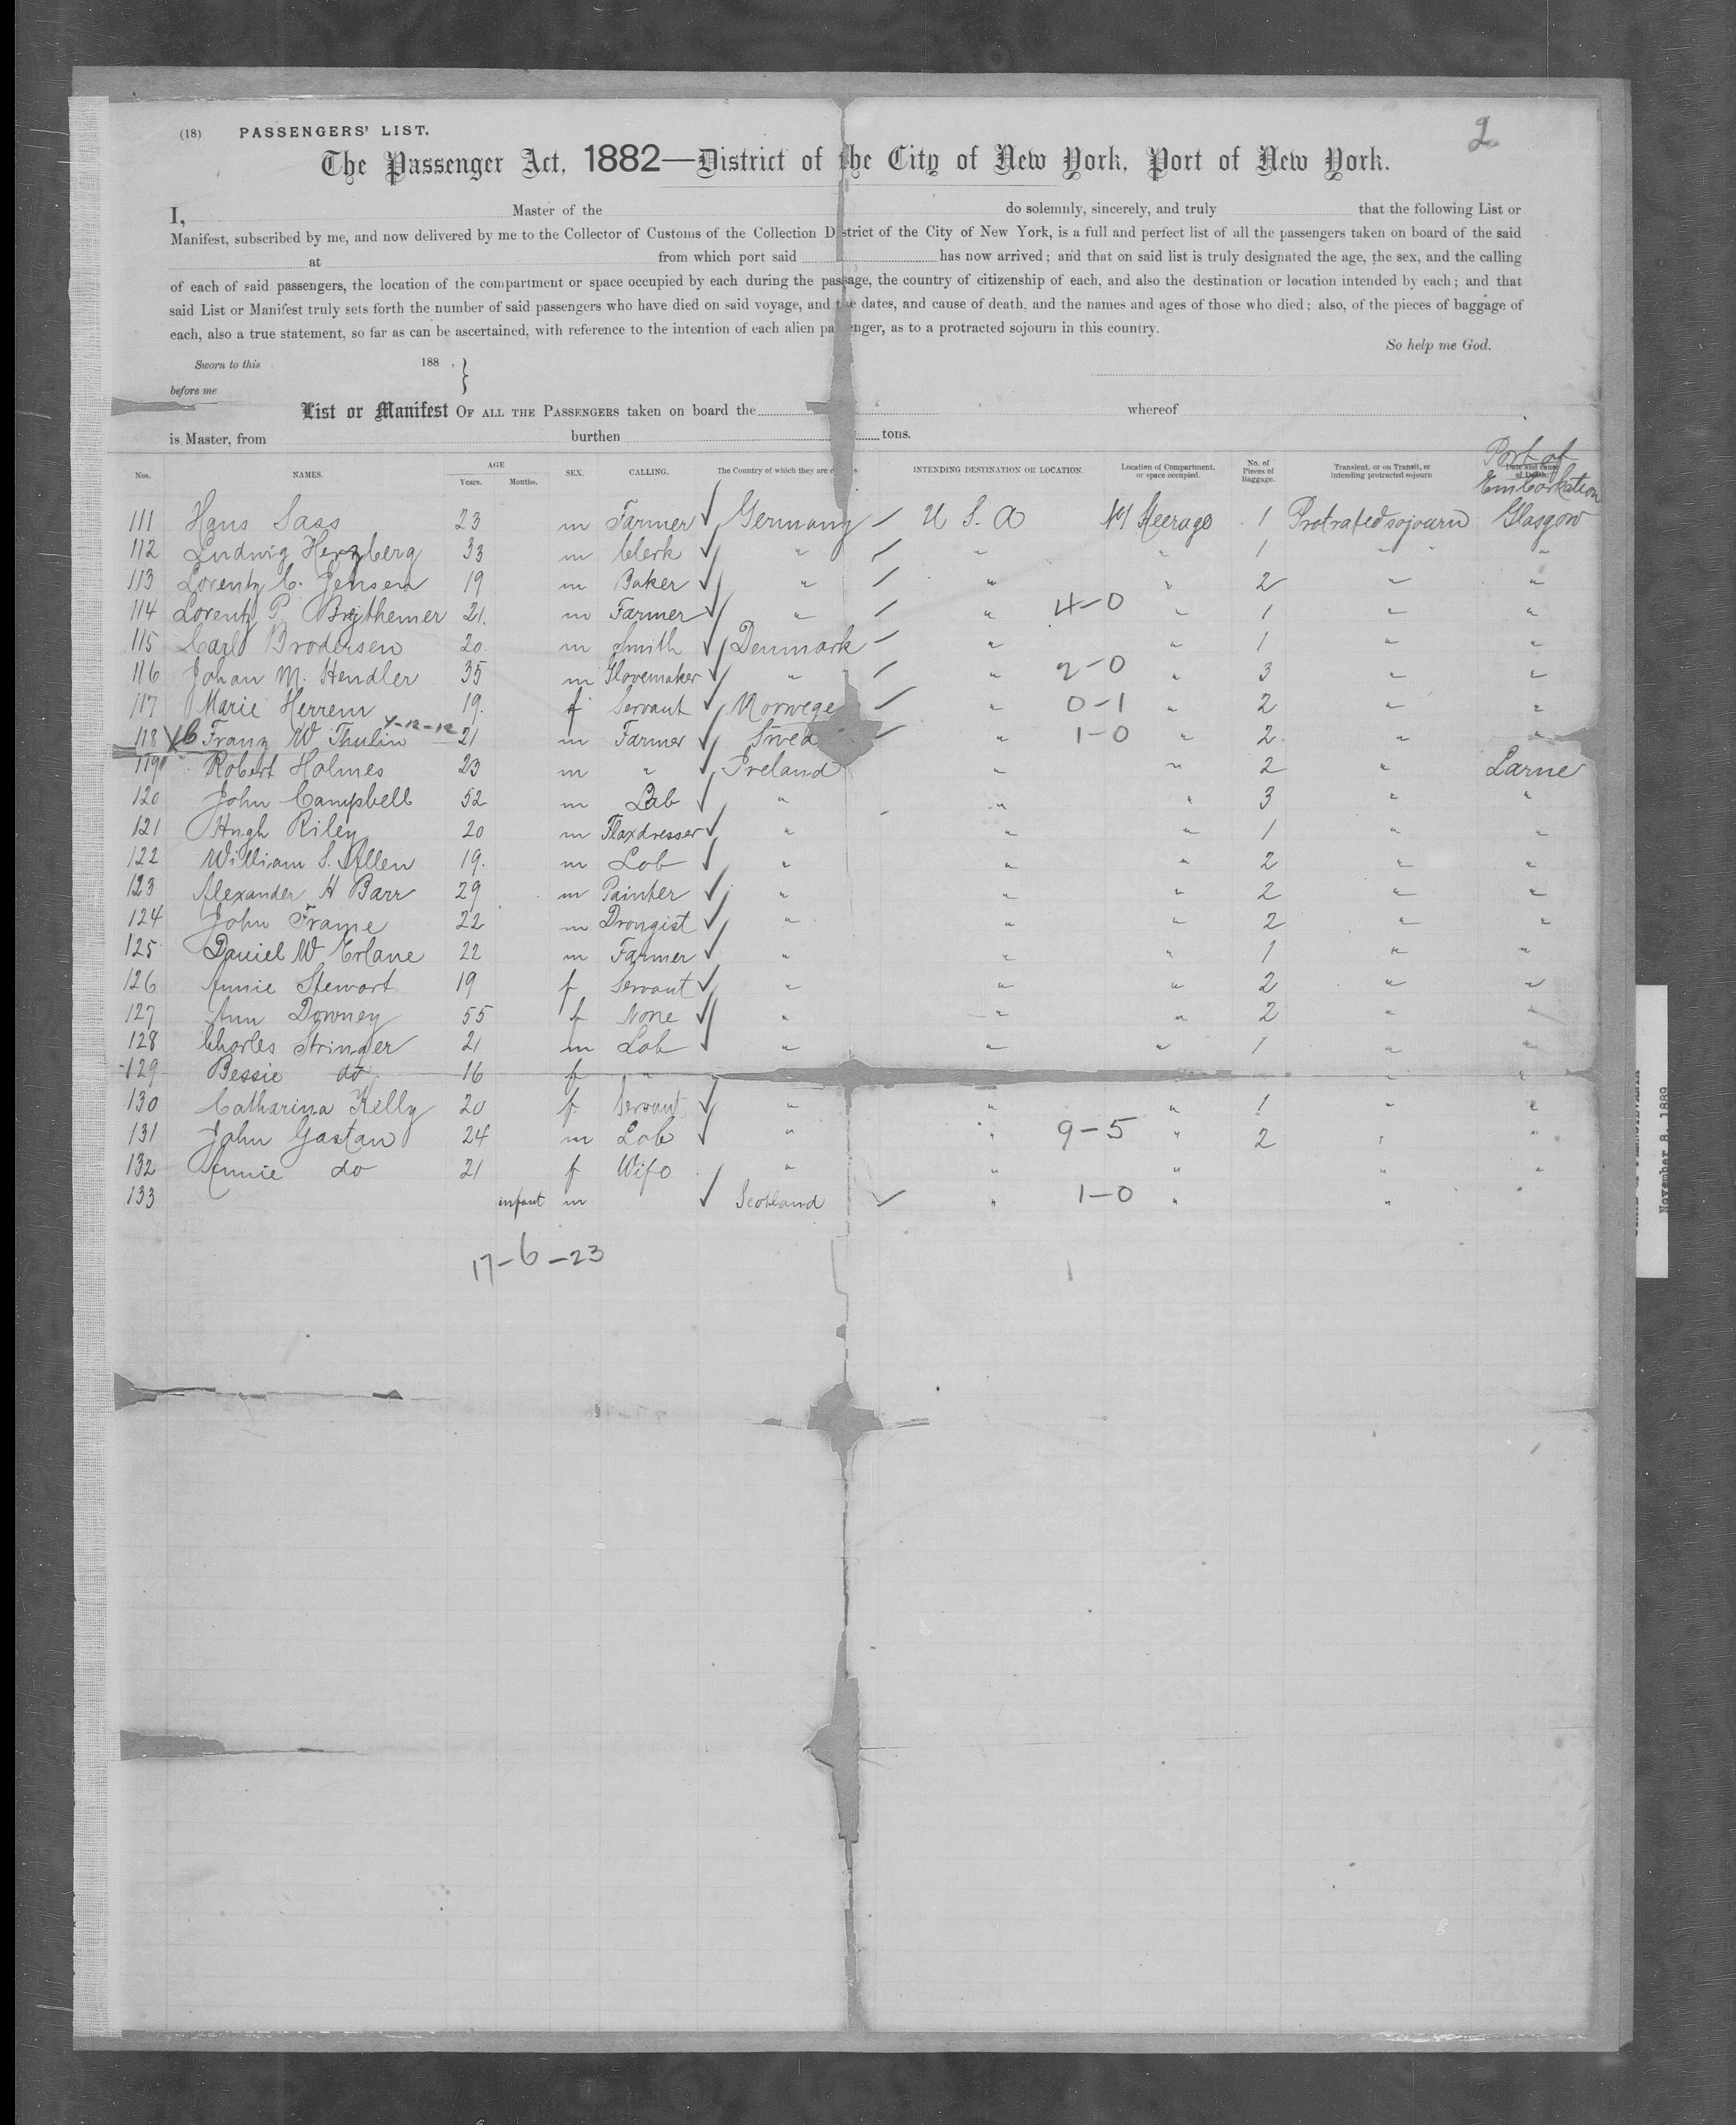 (18) PASSENGERS' LIST.
2
The Passenger Act, 1882—District of the City of New York, Port of New York.
I, Master of the do solemnly, sincerely, and truly that the following List or
Manifest, subscribed by me, and now delivered by me to the Collector of Customs of the Collection District of the City of New York, is a full and perfect list of all the passengers taken on board of the said
at from which port said has now arrived; and that on said list is truly designated the age, the sex, and the calling
of each of said passengers, the location of the compartment or space occupied by each during the passage, the country of citizenship of each, and also the destination or location intended by each; and that
said List or Manifest truly sets forth the number of said passengers who have died on said voyage, and the dates, and cause of death, and the names and ages of those who died; also, of the pieces of baggage of
each, also a true statement, so far as can be ascertained, with reference to the intention of each alien passenger, as to a protracted sojourn in this country.
So help me God.
Sworn to this 188 , }
before me
List or Manifest OF ALL THE PASSENGERS taken on board the whereof
is Master, from burthen tons.
Nos. NAMES. AGE Years. Months. SEX. CALLING. The Country of which they are c s. INTENDING DESTINATION OR LOCATION. Location of Compartment, or space occupied. No. of Pieces of Baggage. Transient, or on Transit, or intending protracted sojourn Date and cause of Death. Port of Embarkation
111 Hans Sass 23 m Farmer ✓ Germany / U. S. A Steerage 1 Protrated sojourn Glasgow
112 Ludwig Herzberg 33 m Clerk ✓ " / " " 1 " " "
113 Lorentz C. Jensen 19 m Baker ✓ " / " " 2 " "
114 Lorentz P. 21. m Farmer ✓ " / " 4-0 " 1 " "
115 Carl Brodersen 20. m Smith ✓ Denmark / " " 1 " "
116 Johan M. Hendler 35 m Glovemaker ✓ " / " 2-0 " 3 " "
117 Marie Herrem 19. f Servant ✓ Norwege / " 0-1 " 2 " "
118 Franz W Thulin 21 m Farmer ✓ Swed / " 1-0 " 2 " "
119 Robert Holmes 23 m " ✓ Ireland " " 2 " Larne
120 John Campbell 52 m Lab ✓ " " " 3 " "
121 Hugh Riley 20 m Flaxdresser ✓ " " " 1 " "
122 William S. Allen 19. m Lab ✓ " " " 2 " "
123 Alexander H Barr 29 m Painter ✓ " " " 2 " "
124 John Frame 22 m Drougist ✓ " " " 2 " "
125 Daniel W Erlane 22 m Farmer ✓ " " " 1 " "
126 Annie Stewart 19 f Servant ✓ " " " 2 " "
127 Ann Downey 55 f None ✓ " " " 2 " "
128 Charles Stringer 21 m Lab ✓ " " " 1 " "
129 Bessie do 16 f " " "
130 Catharina Kelly 20 f Servant ✓ " " " 1 " "
131 John Gastan 24 m Lab ✓ " " 9-5 " 2 " "
132 Annie do 21 f Wife " " " " "
133 infant m ✓ Scotland / " 1-0 " "
17-6-23
November 8, 1889